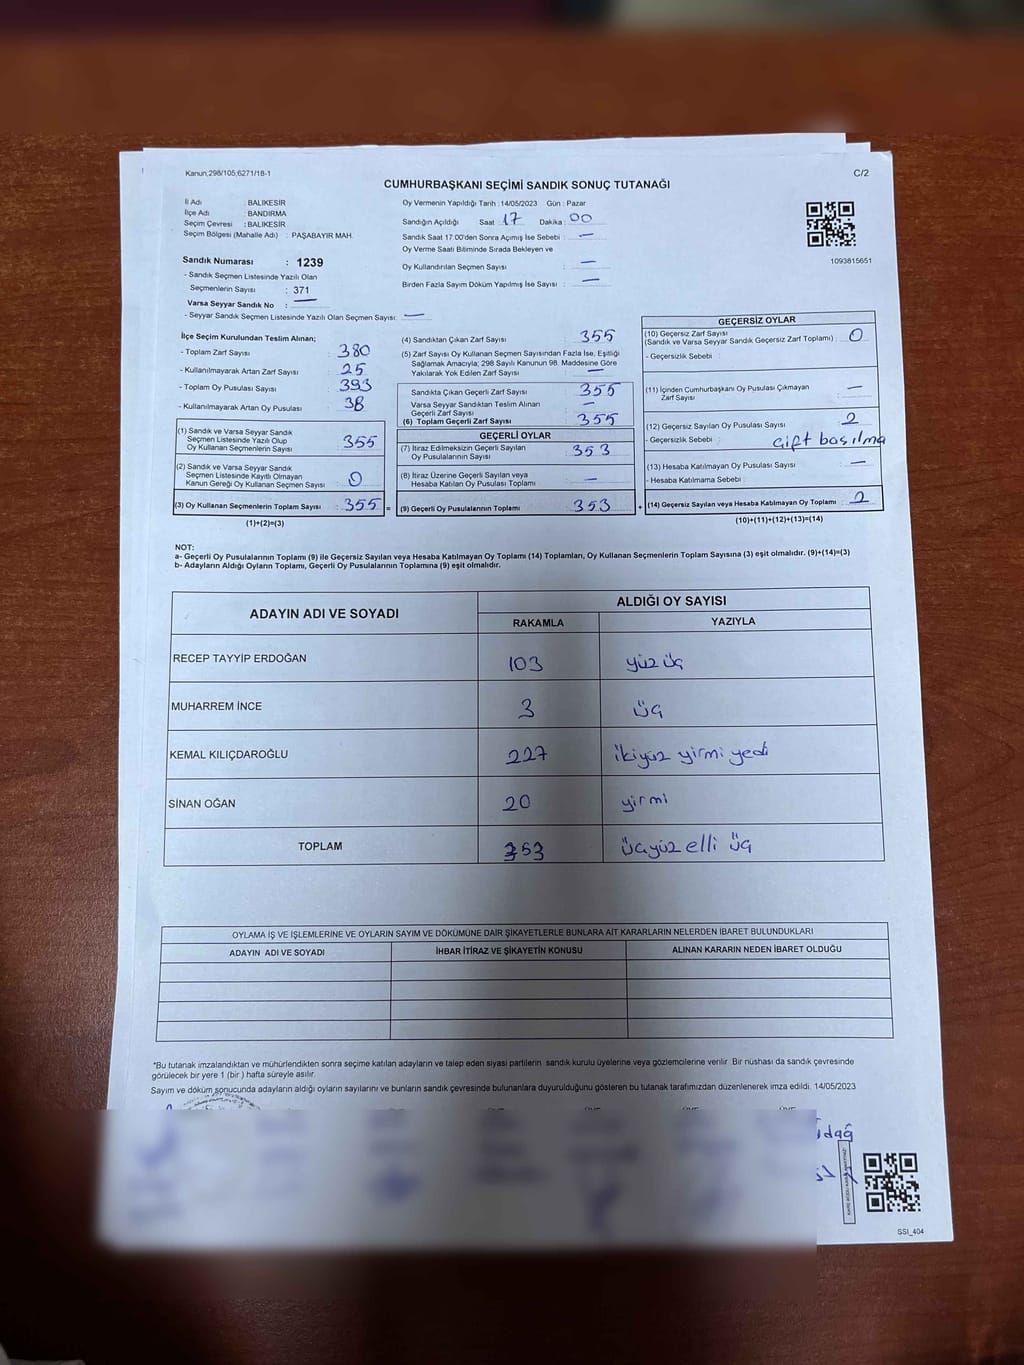 Kanun,298/105,6271/18-1
C/2
CUMHURBAŞKANI SEÇİMİ SANDIK SONUÇ TUTANAĞI
İl Adı : BALIKESİR
İlçe Adı : BANDIRMA
Seçim Çevresi : BALIKESİR
Seçim Bölgesi (Mahalle Adı) : PAŞABAYIR MAH.
Sandık Numarası : 1239
- Sandık Seçmen Listesinde Yazılı Olan
Seçmenlerin Sayısı : 371
Varsa Seyyar Sandık No : —
- Seyyar Sandık Seçmen Listesinde Yazılı Olan Seçmen Sayısı: —
Oy Vermenin Yapıldığı Tarih : 14/05/2023 Gün : Pazar
Sandığın Açıldığı Saat : 17 Dakika : 00
Sandık Saat 17:00'den Sonra Açımış İse Sebebi : —
Oy Verme Saati Bitiminde Sırada Bekleyen ve
Oy Kullandırılan Seçmen Sayısı : —
Birden Fazla Sayım Döküm Yapılmış İse Sayısı : —
1093815651
İlçe Seçim Kurulundan Teslim Alınan;
- Toplam Zarf Sayısı : 380
- Kullanılmayarak Artan Zarf Sayısı : 25
- Toplam Oy Pusulası Sayısı : 393
- Kullanılmayarak Artan Oy Pusulası : 38
(1) Sandık ve Varsa Seyyar Sandık
Seçmen Listesinde Yazılı Olup
Oy Kullanan Seçmenlerin Sayısı : 355
(2) Sandık ve Varsa Seyyar Sandık
Seçmen Listesinde Kayıtlı Olmayan
Kanun Gereği Oy Kullanan Seçmen Sayısı : 0
(3) Oy Kullanan Seçmenlerin Toplam Sayısı : 355 =
(1)+(2)=(3)
(4) Sandıktan Çıkan Zarf Sayısı : 355
(5) Zarf Sayısı Oy Kullanan Seçmen Sayısından Fazla İse, Eşitliği
Sağlamak Amacıyla; 298 Sayılı Kanunun 98. Maddesine Göre
Yakılarak Yok Edilen Zarf Sayısı : —
Sandıkta Çıkan Geçerli Zarf Sayısı : 355
Varsa Seyyar Sandıktan Teslim Alınan
Geçerli Zarf Sayısı : —
(6) Toplam Geçerli Zarf Sayısı : 355
GEÇERLİ OYLAR
(7) İtiraz Edilmeksizin Geçerli Sayılan
Oy Pusulalarının Sayısı : 353
(8) İtiraz Üzerine Geçerli Sayılan veya
Hesaba Katılan Oy Pusulası Toplamı : —
(9) Geçerli Oy Pusulalarının Toplamı : 353 +
GEÇERSİZ OYLAR
(10) Geçersiz Zarf Sayısı
(Sandık ve Varsa Seyyar Sandık Geçersiz Zarf Toplamı) : 0
- Geçersizlik Sebebi :
(11) İçinden Cumhurbaşkanı Oy Pusulası Çıkmayan
Zarf Sayısı : —
(12) Geçersiz Sayılan Oy Pusulası Sayısı : 2
- Geçersizlik Sebebi : çift basılma
(13) Hesaba Katılmayan Oy Pusulası Sayısı : —
- Hesaba Katılmama Sebebi :
(14) Geçersiz Sayılan veya Hesaba Katılmayan Oy Toplamı : 2
(10)+(11)+(12)+(13)=(14)
NOT:
a- Geçerli Oy Pusulalarının Toplamı (9) ile Geçersiz Sayılan veya Hesaba Katılmayan Oy Toplamı (14) Toplamları, Oy Kullanan Seçmenlerin Toplam Sayısına (3) eşit olmalıdır. (9)+(14)=(3)
b- Adayların Aldığı Oyların Toplamı, Geçerli Oy Pusulalarının Toplamına (9) eşit olmalıdır.
ADAYIN ADI VE SOYADI
ALDIĞI OY SAYISI
RAKAMLA YAZIYLA
RECEP TAYYİP ERDOĞAN 103 yüz üç
MUHARREM İNCE 3 üç
KEMAL KILIÇDAROĞLU 227 ikiyüz yirmi yedi
SİNAN OĞAN 20 yirmi
TOPLAM 353 üçyüz elli üç
OYLAMA İŞ VE İŞLEMLERİNE VE OYLARIN SAYIM VE DÖKÜMÜNE DAİR ŞİKAYETLERLE BUNLARA AİT KARARLARIN NELERDEN İBARET BULUNDUKLARI
ADAYIN ADI VE SOYADI İHBAR İTİRAZ VE ŞİKAYETİN KONUSU ALINAN KARARIN NEDEN İBARET OLDUĞU
*Bu tutanak imzalandıktan ve mühürlendikten sonra seçime katılan adayların ve talep eden siyasi partilerin sandık kurulu üyelerine veya gözlemcilerine verilir. Bir nüshası da sandık çevresinde
görülecek bir yere 1 (bir ) hafta süreyle asılır.
Sayım ve döküm sonucunda adayların aldığı oyların sayılarını ve bunların sandık çevresinde bulunanlara duyurulduğunu gösteren bu tutanak tarafımızdan düzenlenerek imza edildi. 14/05/2023
SSI_404